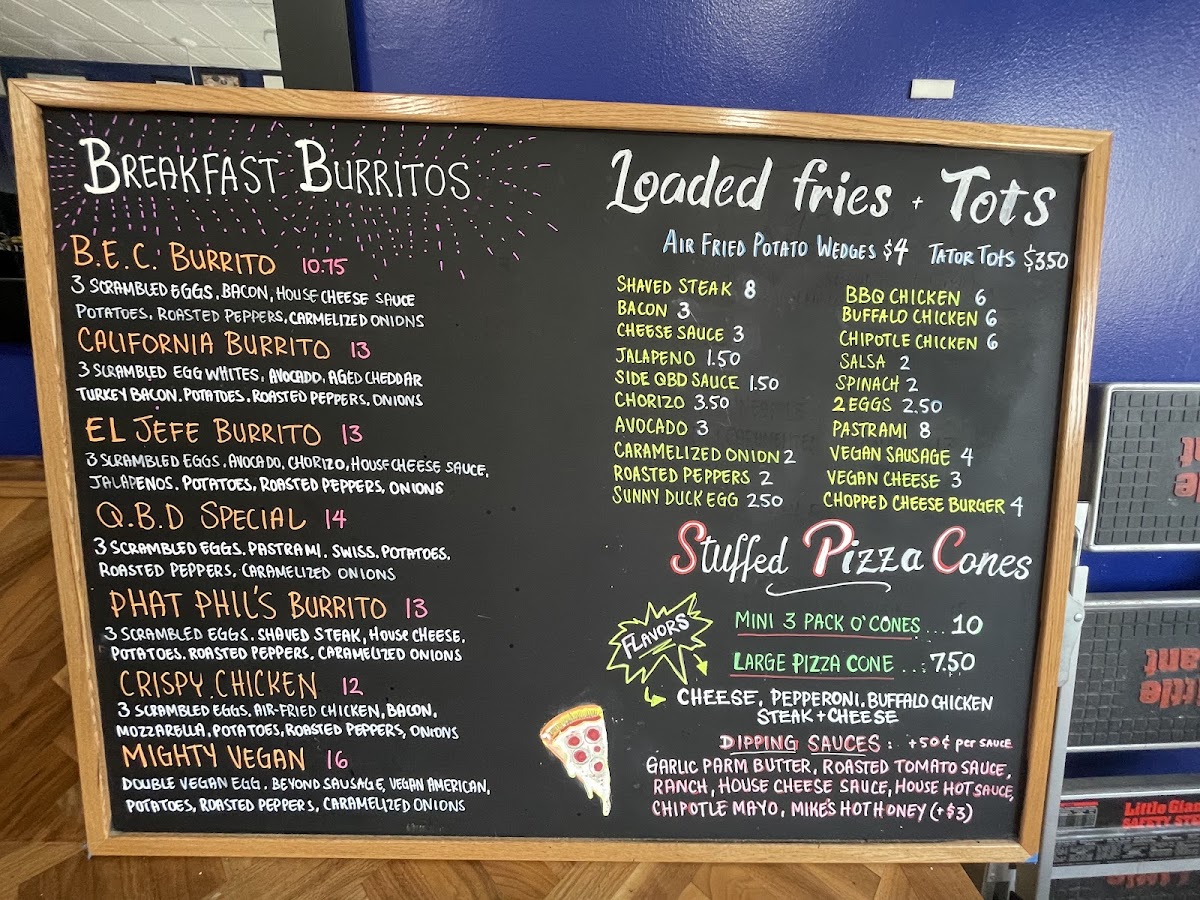 BREAKFAST BURRITOS
B.E.C. BURRITO 10.75
3 SCRAMBLED EGGS, BACON, HOUSE CHEESE SAUCE
POTATOES, ROASTED PEPPERS, CARMELIZED ONIONS
CALIFORNIA BURRITO 13
3 SCRAMBLED EGG WHITES, AVOCADO, AGED CHEDDAR
TURKEY BACON. POTATOES. ROASTED PEPPERS, ONIONS
EL JEFE BURRITO 13
3 SCRAMBLED EGGS, AVOCADO, CHORIZO, HOUSE CHEESE SAUCE,
JALAPENOS. POTATOES, ROASTED PEPPERS, ONIONS
Q.B.D SPECIAL 14
3 SCRAMBLED EGGS. PASTRAMI. SWISS. POTATOES,
ROASTED PEPPERS, CARAMELIZED ONIONS
PHAT PHIL'S BURRITO 13
3 SCRAMBLED EGGS. SHAVED STEAK, HOUSE CHEESE,
POTATOES. ROASTED PEPPERS, CARAMELIZED ONIONS
CRISPY CHICKEN 12
3 SCRAMBLED EGGS. AIR-FRIED CHICKEN, BACON,
MOZZARELLA, POTATOES, ROASTED PEPPERS, ONIONS
MIGHTY VEGAN 16
DOUBLE VEGAN EGG. BEYOND SAUSAGE, VEGAN AMERICAN,
POTATOES, ROASTED PEPPERS, CARAMELIZED ONIONS
Loaded fries + Tots
AIR FRIED POTATO WEDGES $4 TATOR TOTS $3.50
SHAVED STEAK 8
BACON 3
CHEESE SAUCE 3
JALAPENO 1.50
SIDE QBD SAUCE 1.50
CHORIZO 3.50
AVOCADO 3
CARAMELIZED ONION 2
ROASTED PEPPERS 2
SUNNY DUCK EGG 2.50
BBQ CHICKEN 6
BUFFALO CHICKEN 6
CHIPOTLE CHICKEN 6
SALSA 2
SPINACH 2
2 EGGS 2.50
PASTRAMI 8
VEGAN SAUSAGE 4
VEGAN CHEESE 3
CHOPPED CHEESE BURGER 4
Stuffed Pizza Cones
FLAVORS
MINI 3 PACK O' CONES ... 10
LARGE PIZZA CONE ... 7.50
CHEESE, PEPPERONI, BUFFALO CHICKEN
STEAK + CHEESE
DIPPING SAUCES: +50¢ PER SAUCE
GARLIC PARM BUTTER, ROASTED TOMATO SAUCE,
RANCH, HOUSE CHEESE SAUCE, HOUSE HOT SAUCE,
CHIPOTLE MAYO, MIKE'S HOT HONEY (+$3)
Little Giant
SAFETY